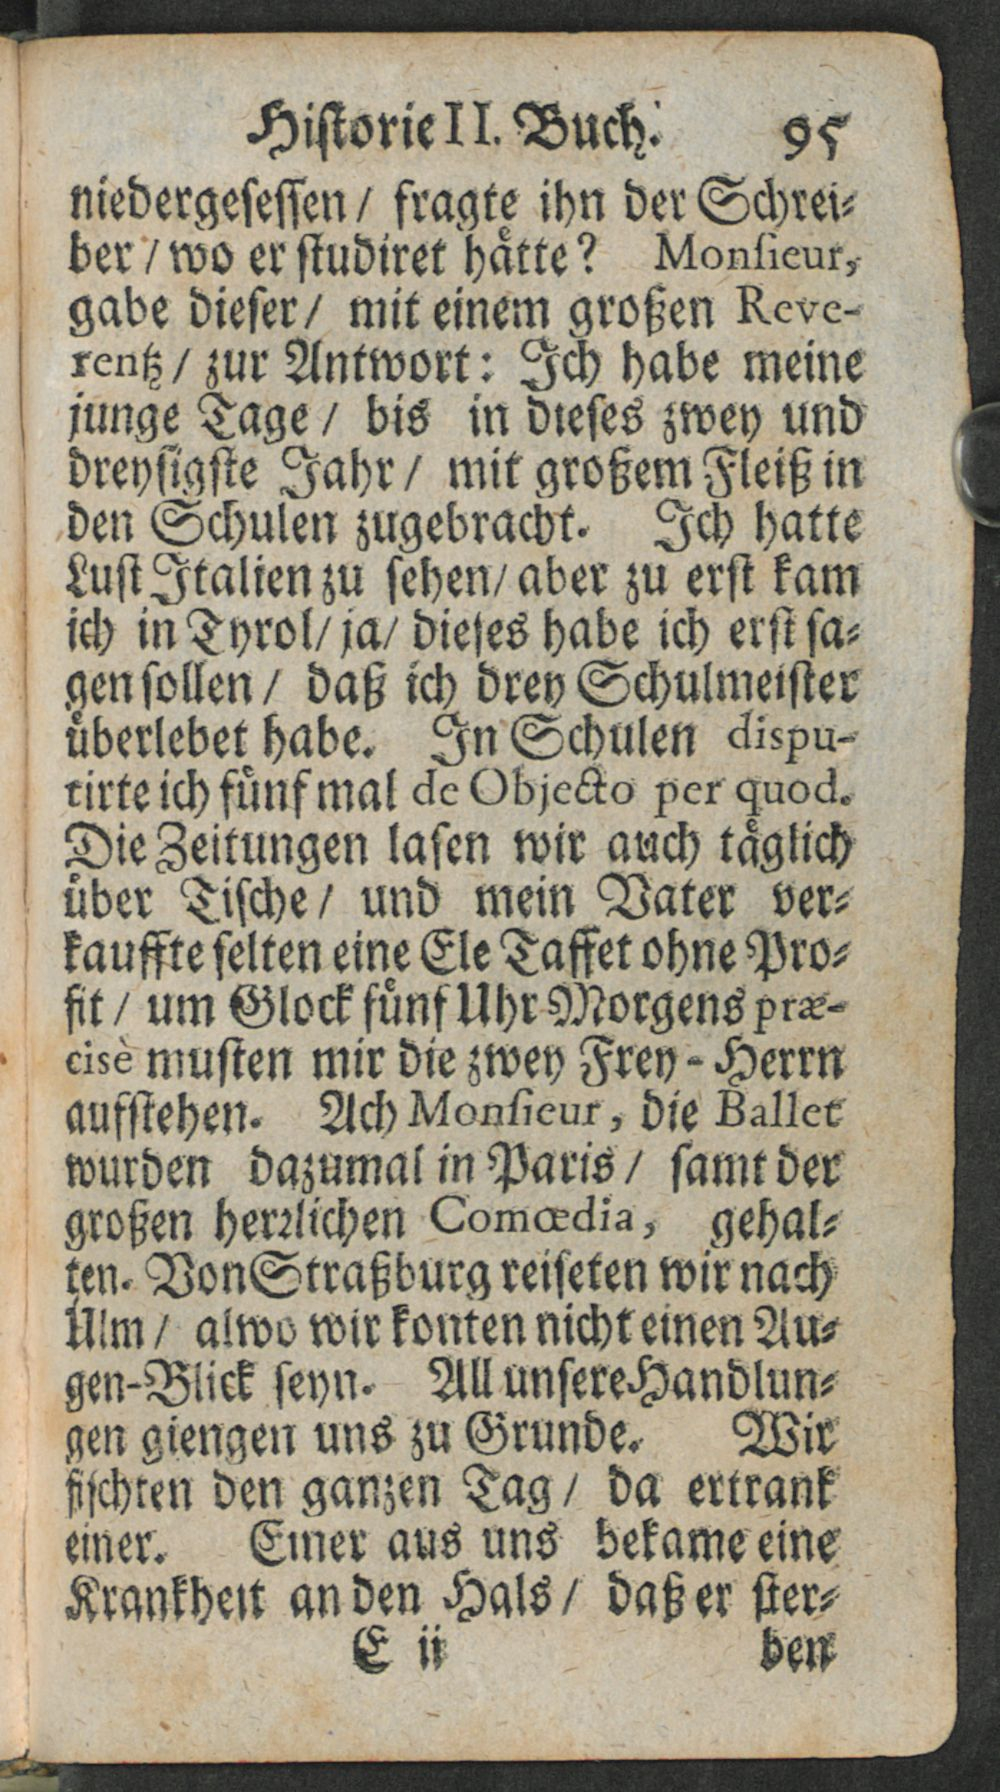 Hiſtorie II. Buch. 95
niedergeſeſſen / fragte ihn der Schrei⸗
ber / wo er ſtudiret haͤtte? Monſieur,
gabe dieſer / mit einem großen Reve-
rentz / zur Antwort: Ich habe meine
junge Tage / bis in dieſes zwey und
dreyſigſte Jahr / mit großem Fleiß in
den Schulen zugebracht. Ich hatte
Luſt Italien zu ſehen / aber zu erſt kam
ich in Tyrol / ja / dieſes habe ich erſt ſa⸗
gen ſollen / daß ich drey Schulmeiſter
uͤberlebet habe. In Schulen dispu-
tirte ich fuͤnf mal de Objecto per quod.
Die Zeitungen laſen wir auch taͤglich
uͤber Tiſche / und mein Vater ver⸗
kauffte ſelten eine Ele Taffet ohne Pro⸗
fit / um Glock fuͤnf Uhr Morgens præ-
cisè muſten mir die zwey Frey-Herrn
aufſtehen. Ach Monſieur, die Ballet
wurden dazumal in Paris / ſamt der
großen herꝛlichen Comœdia, gehal⸗
ten. Von Straßburg reiſeten wir nach
Ulm / alwo wir konten nicht einen Au⸗
gen-Blick ſeyn. All unſere Handlun⸗
gen giengen uns zu Grunde. Wir
fiſchten den ganzen Tag / da ertrank
einer. Einer aus uns bekame eine
Krankheit an den Hals / daß er ſter⸗
E ii ben